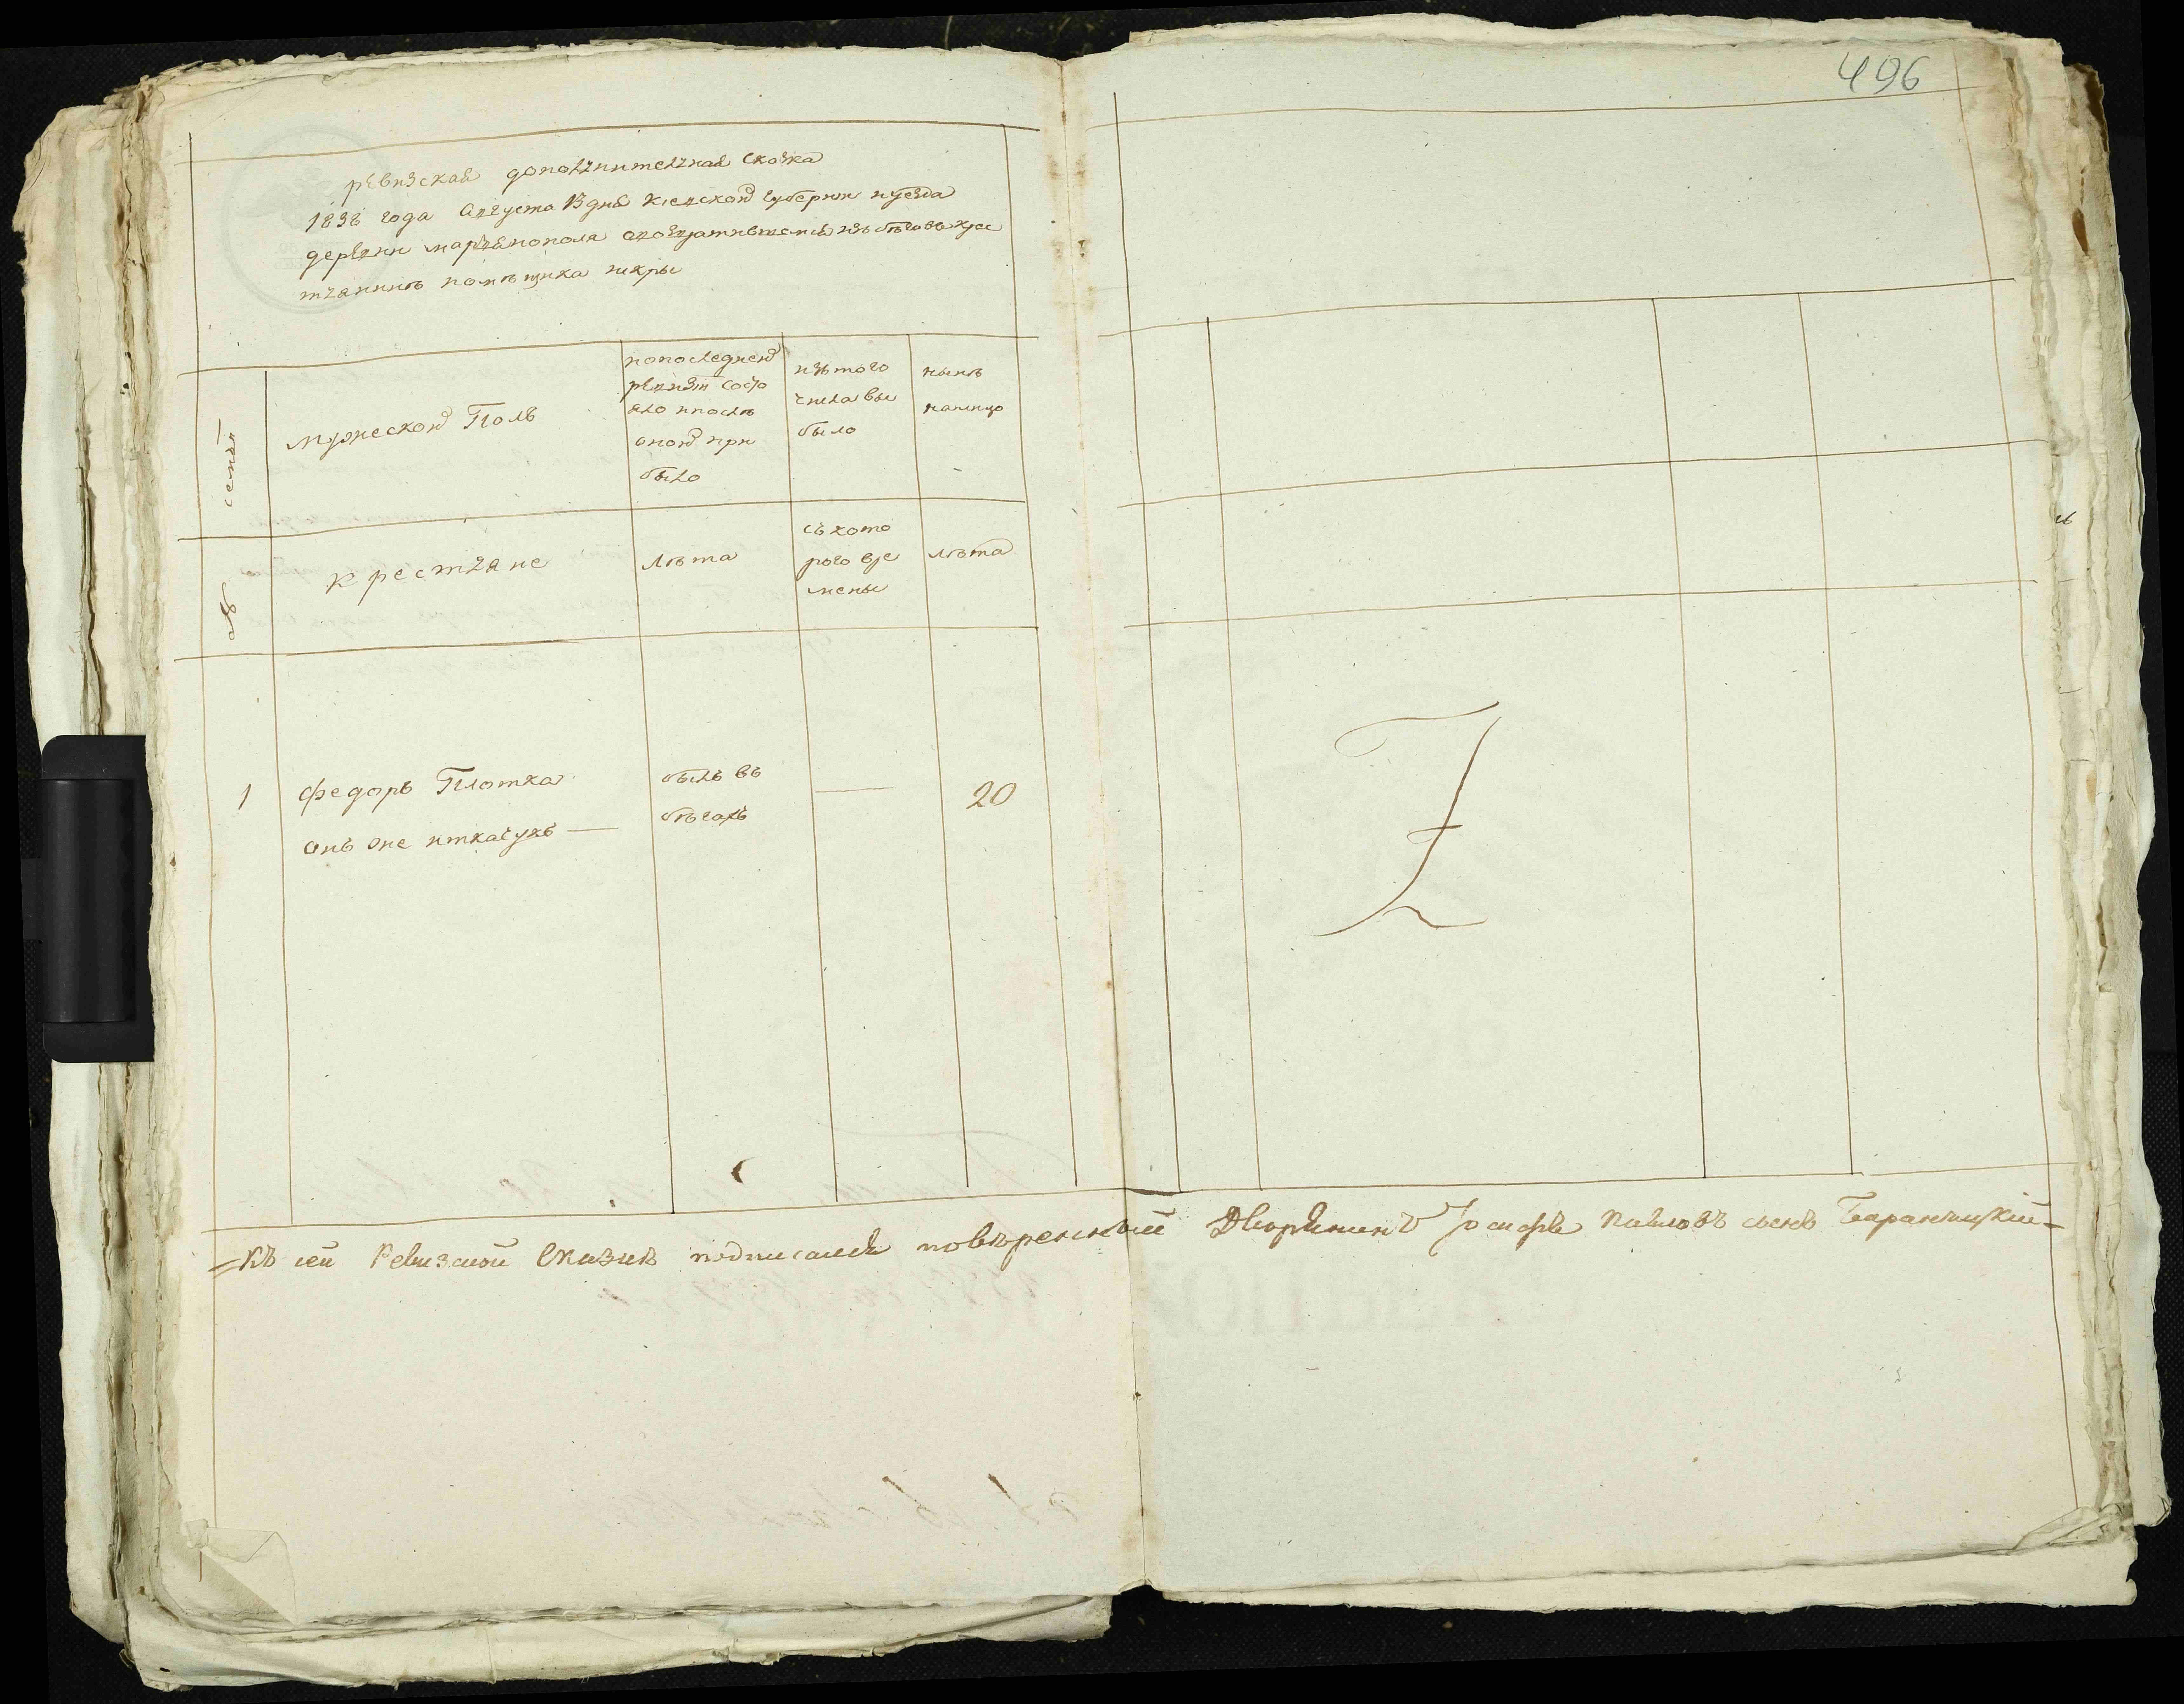 496
ревизская дополнительная сказка
1838 года августа 13 дня Киевской губернии и уезда
деревни Марьянополя о возвратившемся изъ бѣговъ крес
тьянинѣ помѣщика
№ семьи
мужеской Полъ
по последней
ревизіи состо
яло и послѣ
оной при
было
изъ того
числа вы
было
нынѣ
налицо
крестьяне
лѣта
съ кото
рого вре
мены
лѣта
1
Федоръ Плотка
онъ же и ткачукъ
былъ въ
бѣгахъ
20
Къ сей Ревизской Сказкѣ подписался повѣренный Дворянинъ Іосифъ Павловъ сынъ Баранѣцкій